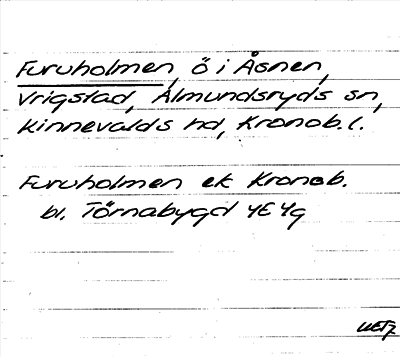 Furuholmen, ö i Åsnen,
Vrigstad, Almundsryds sn,
Kinnevalds hd, Kronob. l.
Furuholmen ek Kronob.
bl. Törnabygd 4E4g